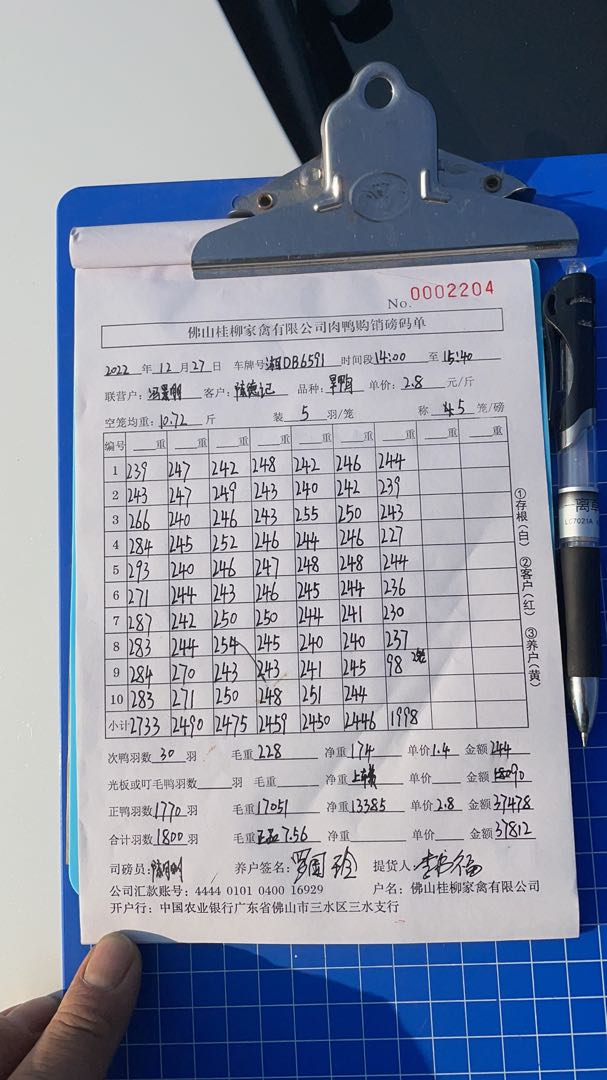 No. 0002204
佛山桂柳家禽有限公司肉鸭购销磅码单
2022 年 12 月 27 日 车牌号 湘DB6591 时间段 14:00 至 15:40
联营户: 客户: 陈德记 品种: 单价: 2.8 元/斤
空笼均重: 10.72 斤 装 5 羽/笼 称 5 笼/磅
编号 重 重 重 重 重 重 重 重 重
1 239 247 242 248 242 246 244
2 243 247 249 243 240 242 239
3 266 240 246 243 255 250 243
4 284 245 252 246 244 246 227
5 293 240 246 247 248 248 244
6 271 244 243 246 245 244 236
7 287 242 250 250 244 241 230
8 283 244 254 245 240 240 237
9 284 270 243 243 241 245 98 2笼
10 283 271 250 248 251 244
小计 2733 2490 2475 2459 2450 2446 1998
①存根(白) ②客户(红) ③养户(黄)
次鸭羽数 30 羽 毛重 228 净重 174 单价 1.4 金额 244
光板或叮毛鸭羽数 羽 毛重 净重 单价 金额 90
正鸭羽数 1770 羽 毛重 17051 净重 13385 单价 2.8 金额 37478
合计羽数 1800 羽 毛重 7.56 净重 单价 金额 37812
司磅员: 养户签名: 罗国玲 提货人:
公司汇款账号: 4444 0101 0400 16929 户名: 佛山桂柳家禽有限公司
开户行: 中国农业银行广东省佛山市三水区三水支行
LC7021A